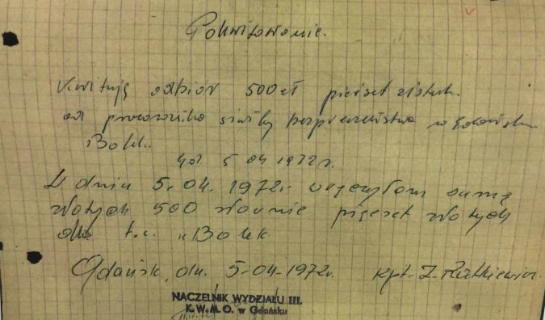 Pokwitowanie.
Kwituję odbiór 500 zł pięćset złotych.
od pracownika służby bezpieczeństwa w Gdańsku
Bolek.
5 04 1972r.
W dniu 5.04.1972r. wręczyłem sumę
złotych 500 słownie pięćset złotych
dla t.w. "Bolek
Gdańsk, dn. 5-04-1972r. kpt. Z. Ratkiewicz
NACZELNIK WYDZIAŁU III.
K.W.M.O. w Gdańsku